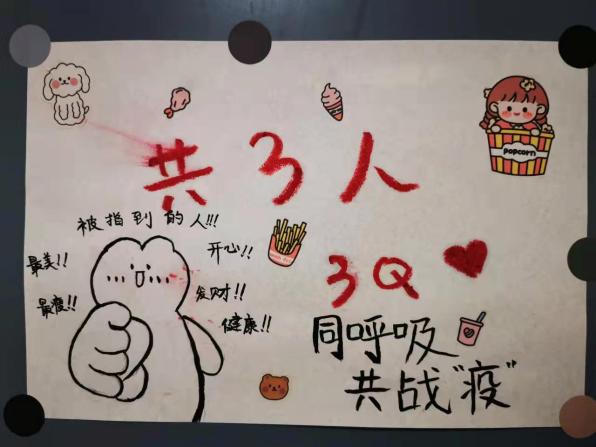 共3人
popcorn
被指到的人!!!
最美!!
开心!!
最瘦!!
发财!!
健康!!
3Q
同呼吸
共战"疫"